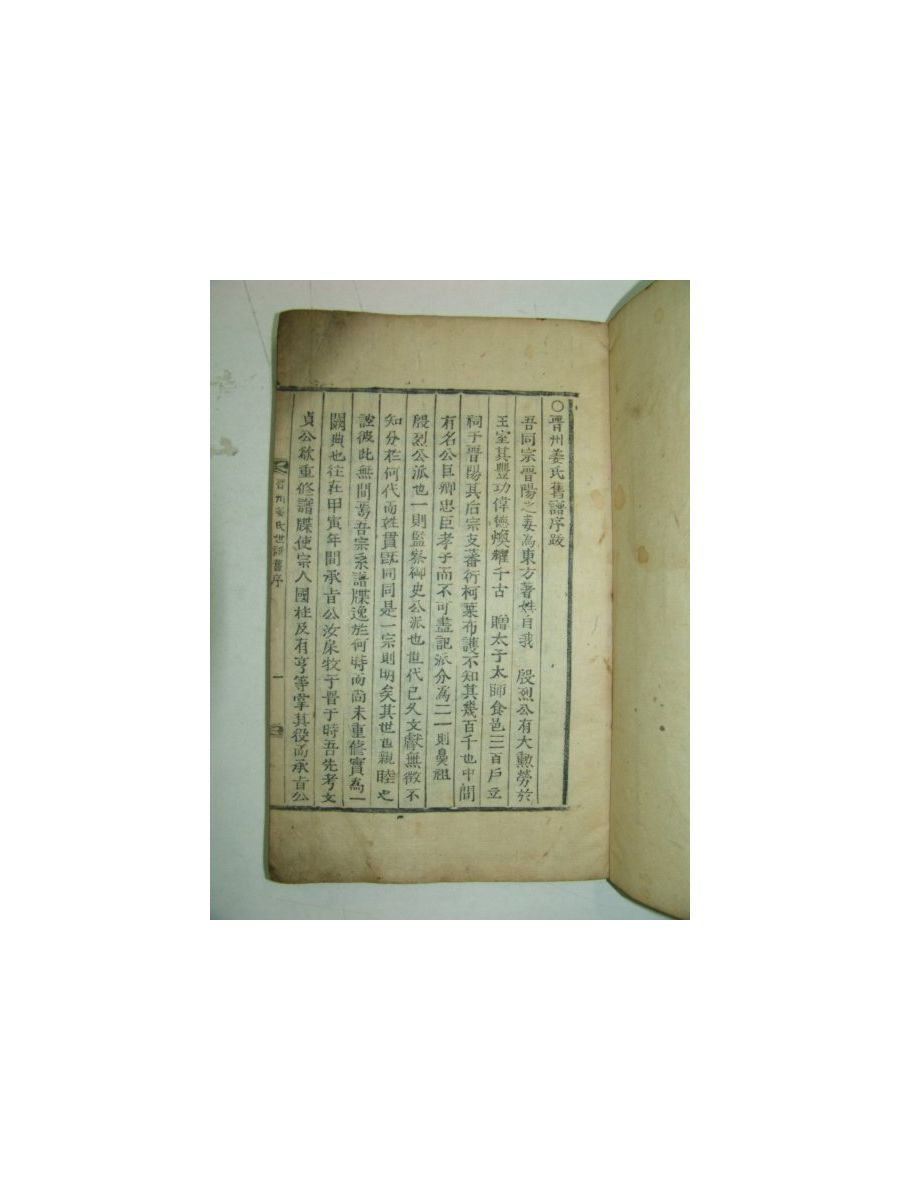 ○晉州姜氏舊譜序跋
吾同宗晉陽之姜為東方著姓自我 殷烈公有大勳勞於
王室其豐功偉德煥耀千古 贈太子太師食邑三百戶立
祠于晉陽其后宗支蕃衍柯葉布護不知其幾百千也中間
有名公巨卿忠臣孝子而不可盡記派分為二一則鼻祖
殷烈公派也一則監察御史公派也世代已久文獻無徵不
知分在何代而姓貫既同同是一宗則明矣其世也親睦之
誼彼此無間焉吾宗系譜牒逸於何時而尚未重修實為一
闕典也往在甲寅年間承旨公汝㞳牧于晉于時吾先考文
貞公欲重修譜牒使宗人國柱及有亨等掌其役而承旨公
晉州姜氏世譜舊序 一